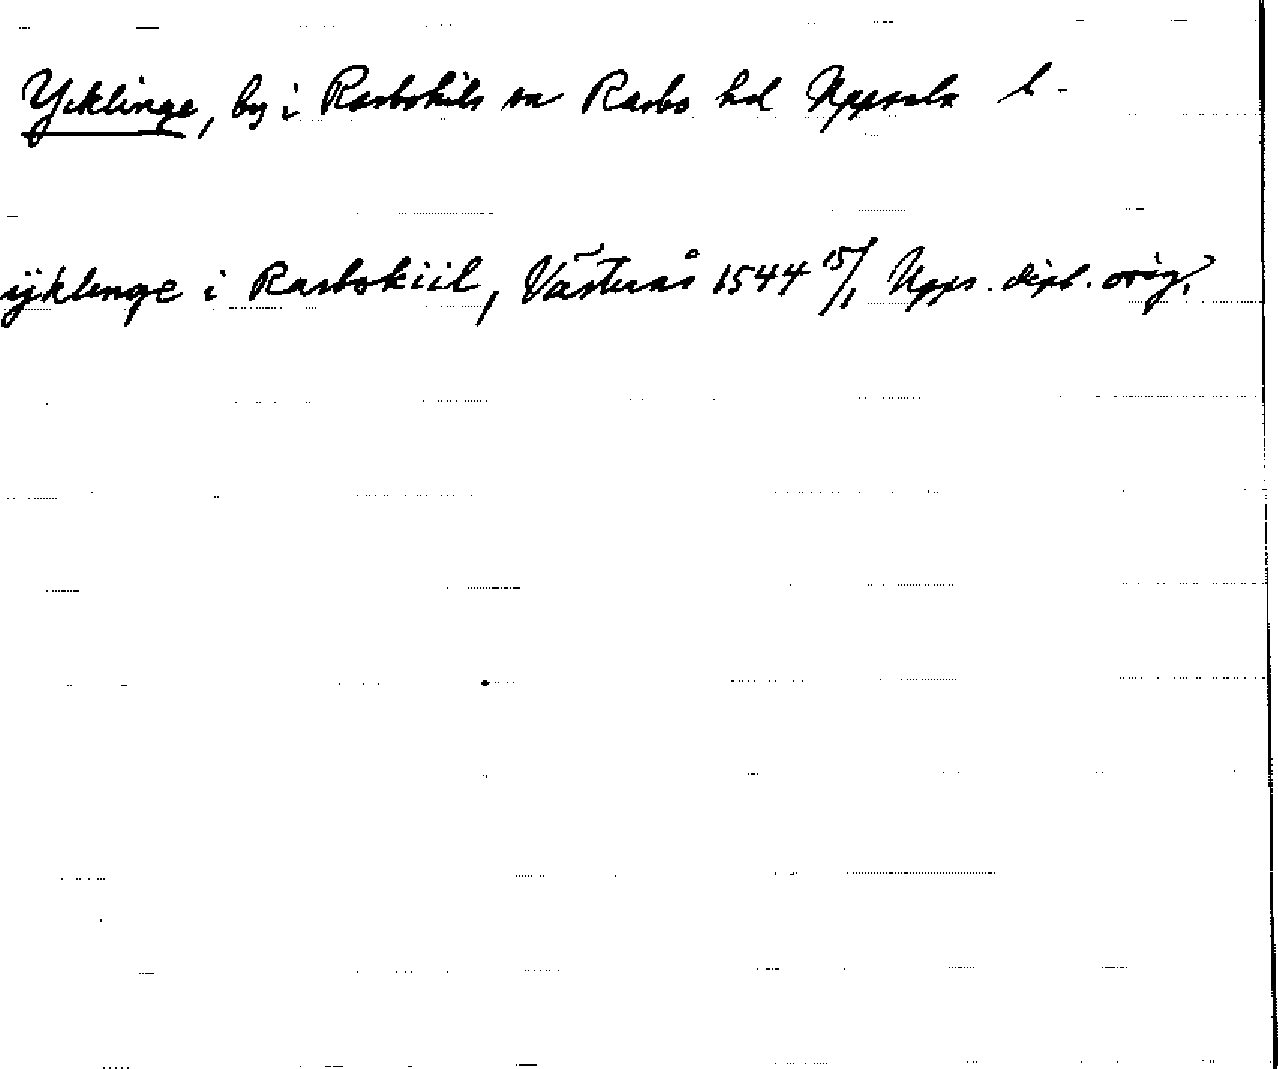 Ycklinge, by i Rasbokils sn Rasbo hd Uppsala l.
ÿklenge i Rasbokiil, Västerås 1544 15/1 Upps. dipl. orig.